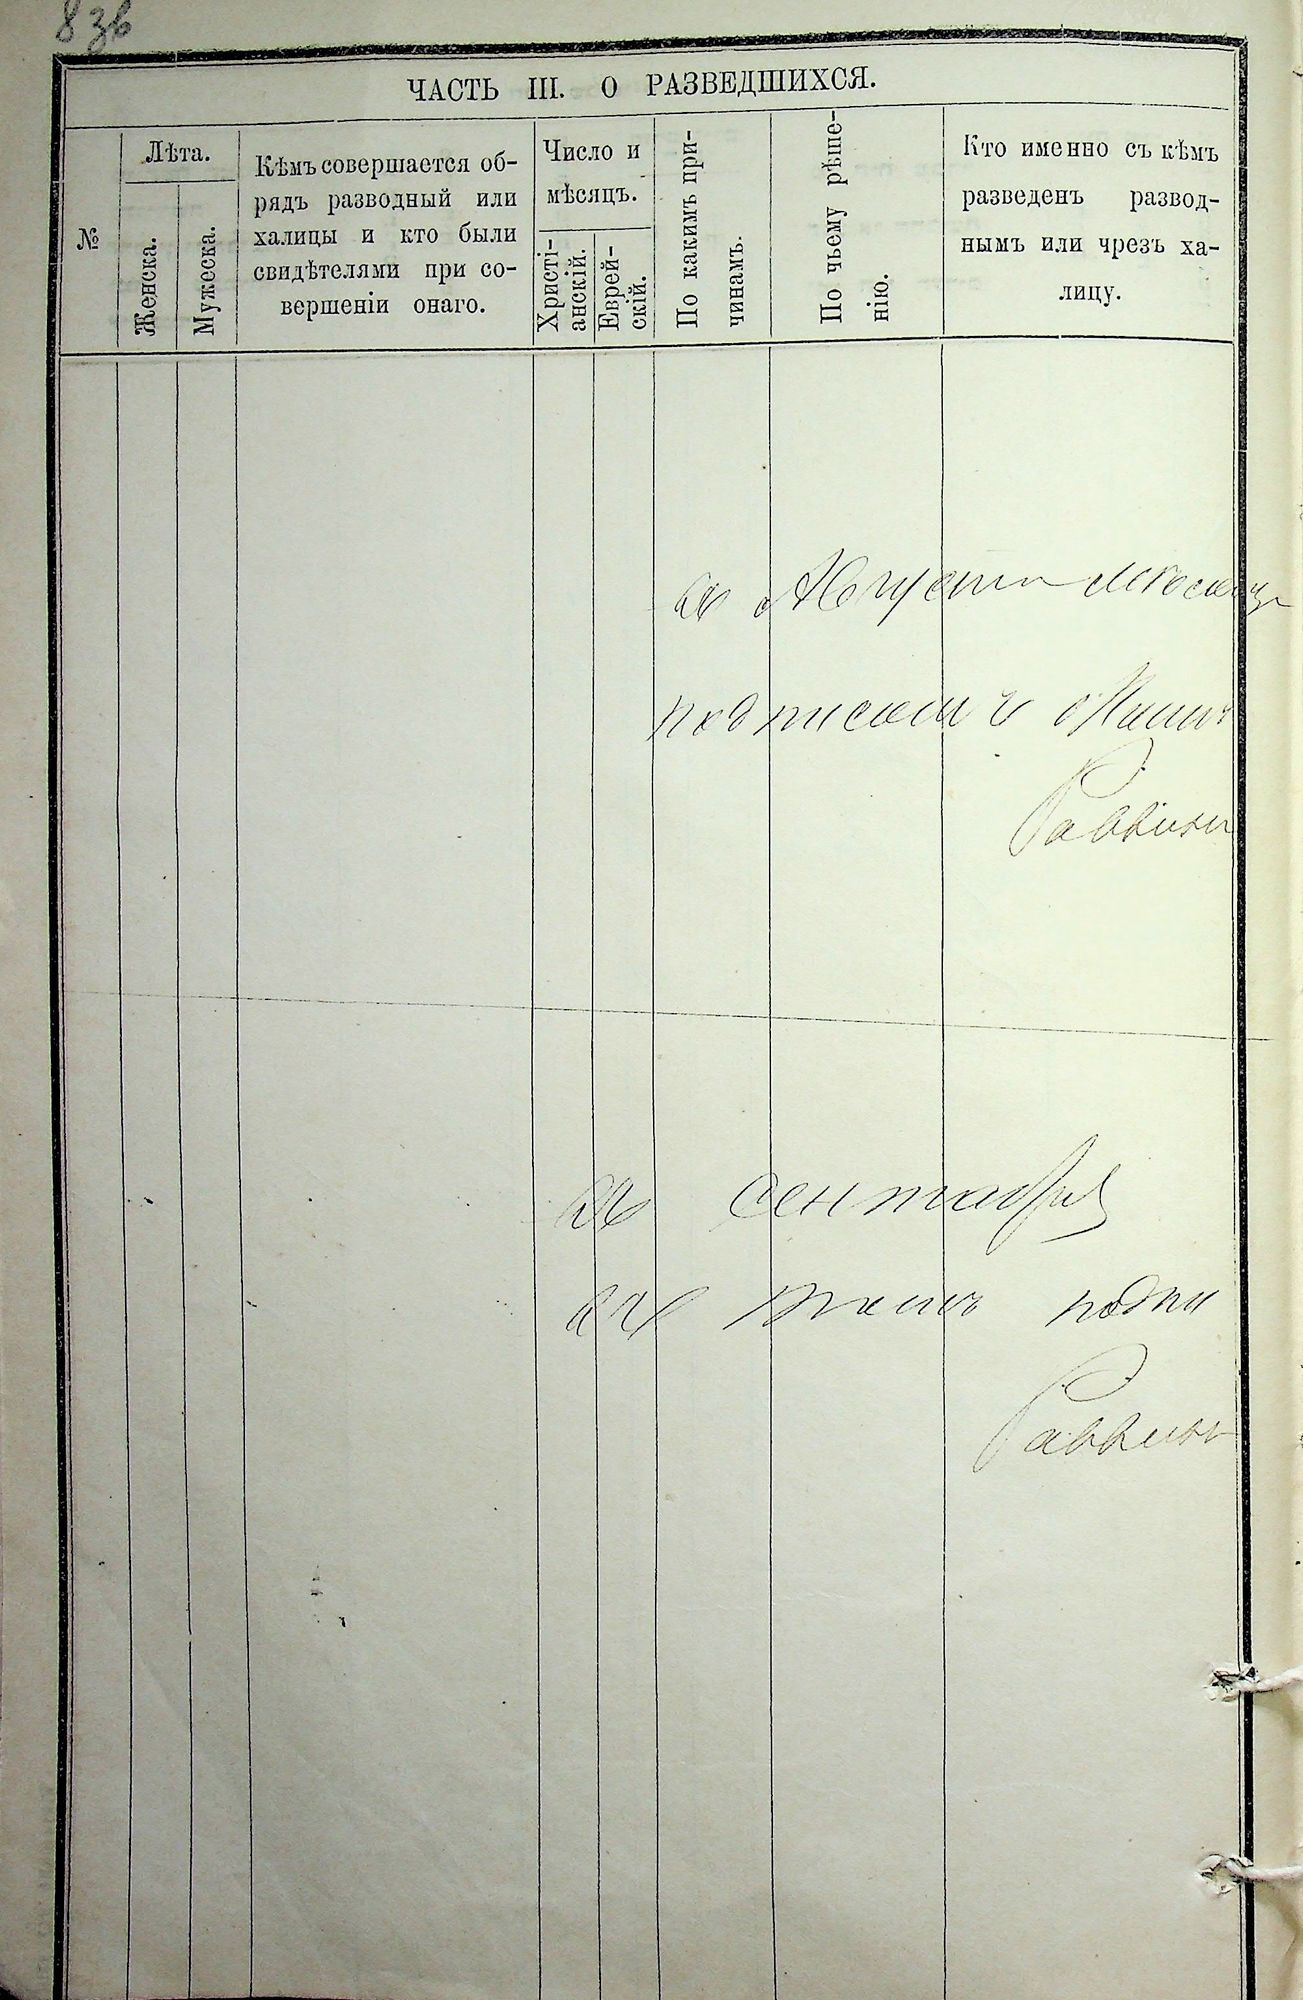 83в
ЧАСТЬ III. О РАЗВЕДШИХСЯ.
№
Лѣта.
Женска.
Мужеска.
Кѣмъ совершается об-
рядъ разводный или
халицы и кто были
свидѣтелями при со-
вершеніи онаго.
Число и
мѣсяцъ.
Христі-
анскій.
Еврей-
скій.
По какимъ при-
чинамъ.
По чьему рѣше-
нію.
Кто именно съ кѣмъ
разведенъ развод-
нымъ или чрезъ ха-
лицу.
въ Августа мѣсяца
подписомъ
Раввинъ
въ сентября
въ томъ подпи
Раввинъ